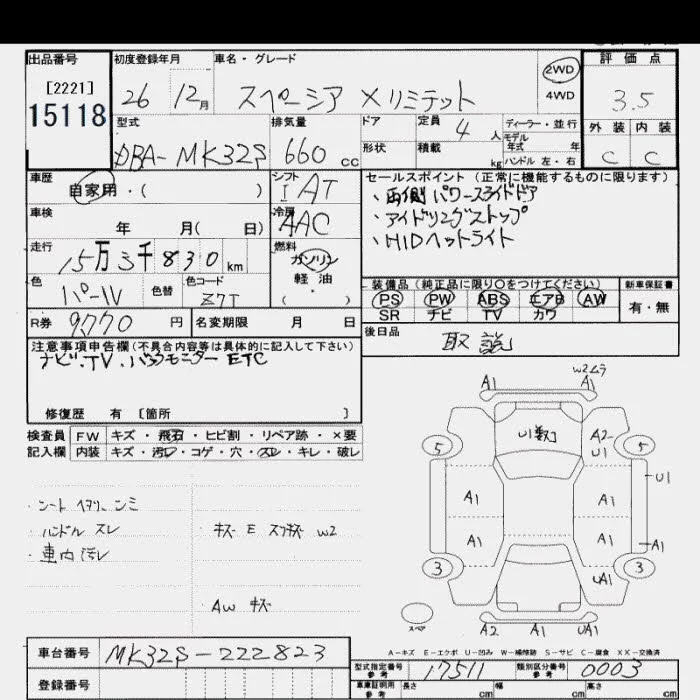 出品番号 初度登録年月 車名・グレード 2WD 4WD 評価点
[2221]
15118
26 12月 スペーシア Xリミテット 3.5
型式 排気量 ドア 定員 4 人 ディーラー・並行 外装 内装
DBA-MK32S 660 cc 形状 積載 kg モデル年式 年 ハンドル 左・右 C C
車歴 自家用・( ) シフト IAT セールスポイント(正常に機能するものに限ります)
・両側パワースライドドア
車検 年 月( 日) 冷房 AAC ・アイドリングストップ
・HIDヘットライト
走行 15万3千830km 燃料 ガソリン 軽油 ・( )
色 パール 色替 色コード Z7T 装備品(純正品に限り〇をつけてください) 新車保証書
PS PW ABS エアB AW 有・無
SR ナビ TV カワ
R券 9770円 名変期限 月 日 後日品 取説
注意事項申告欄(不具合内容等は具体的に記入して下さい)
ナビ.TV.バックモニター ETC
修復歴 有 [箇所 ]
検査員 FW キズ・飛石・ヒビ割・リペア跡・×要
記入欄 内装 キズ・汚レ・コゲ・穴・スレ・キレ・破レ
・ハンドル スレ キズ E スリキズ W2
・車内汚レ
AW キズ
W2ムラ
A1 A1
5 A2 5
U1
U1
A1 A1
A1 A1 A1
3 UA1 3
スペア A2 A1 UA1
A-キズ E-エクボ U-凹み W-補修跡 S-サビ C-腐食 XX-交換済
車台番号 MK32S-222823
型式指定番号 参考 17511 類別区分番号 参考 0003
登録番号 車庫証明用 参考 長さ cm 幅 cm 高さ cm